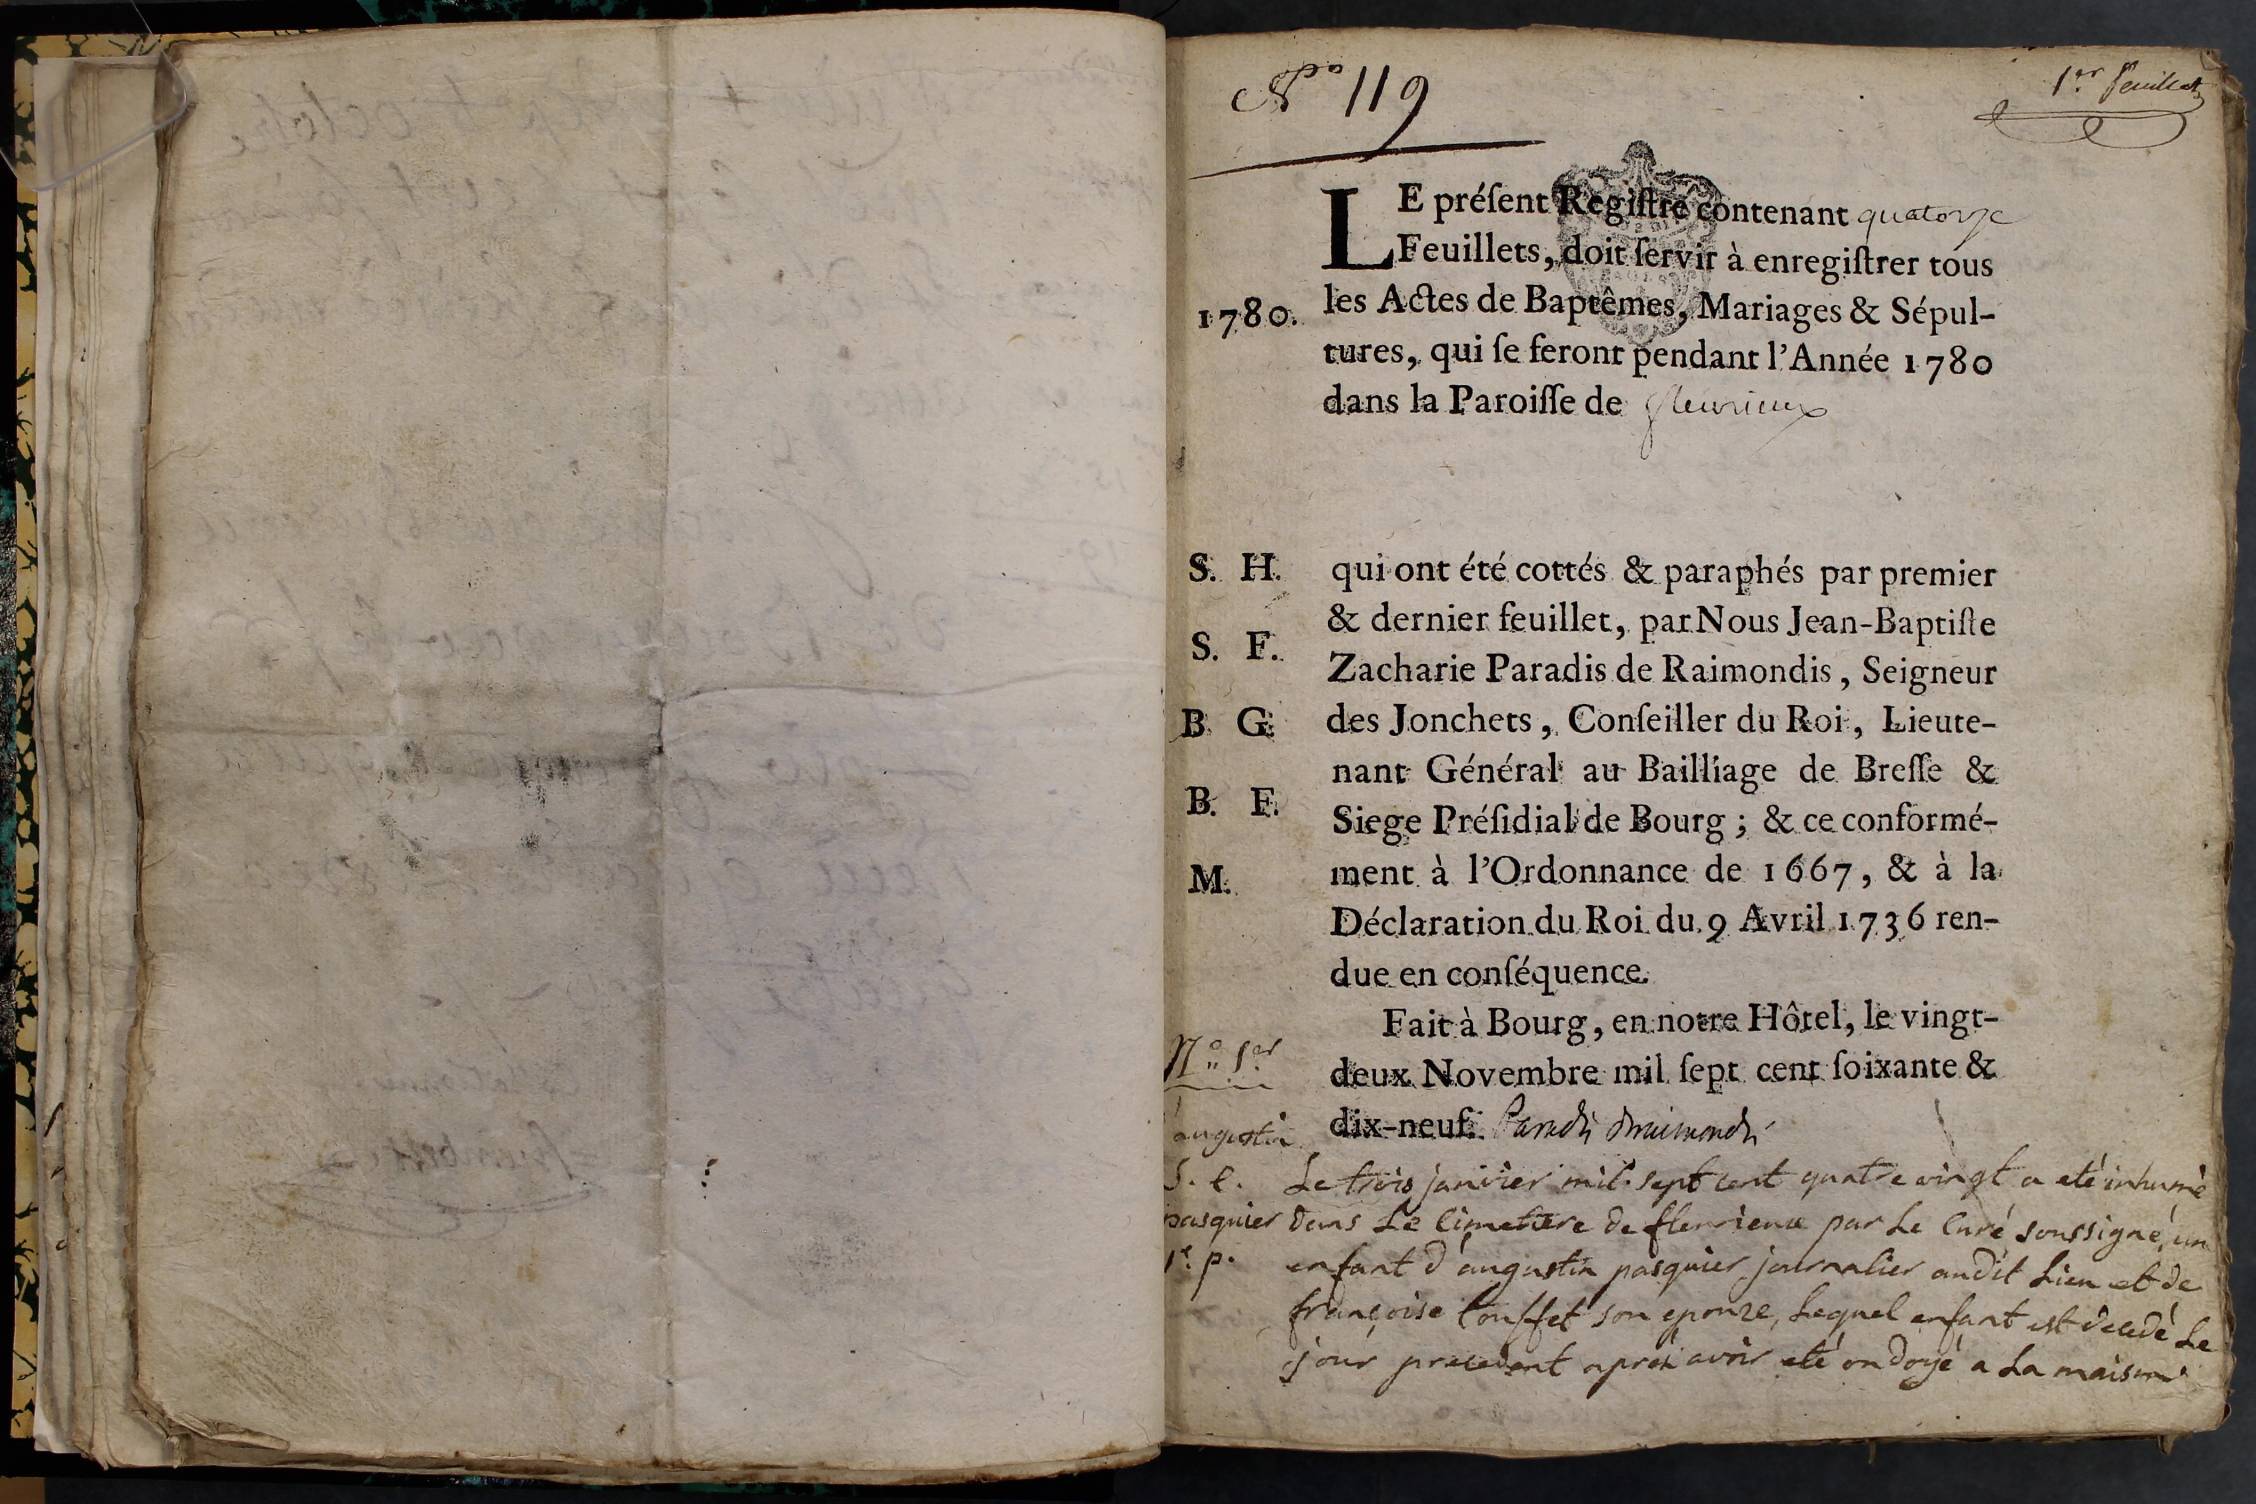 N° 119
1.er feuillet
LE préſent Regiſtre contenant quatorze
Feuillets, doit ſervir à enregiſtrer tous
1780.
les Actes de Baptêmes, Mariages & Sépul-
tures, qui ſe feront pendant l'Année 1780
dans la Paroiſſe de fleurieux
S. H.
S. F.
B. G.
B. F.
M.
qui ont été cottés & paraphés par premier
& dernier feuillet, par Nous Jean-Baptiſte
Zacharie Paradis de Raimondis, Seigneur
des Jonchets, Conſeiller du Roi, Lieute-
nant Général au Bailliage de Breſſe &
Siege Préſidial de Bourg; & ce conformé-
ment à l'Ordonnance de 1667, & à la
Déclaration du Roi du 9 Avril 1736 ren-
due en conſéquence.
Fait à Bourg, en notre Hôtel, le vingt-
deux Novembre mil ſept cent ſoixante &
dix-neuf. Paradis deraimondis
N° 1.er
augustin
S. e.
pasquier
1.e p.
Le trois janvier mil sept cent quatre vingt a eté inhumé
dans Le Cimetiere de fleurieux par Le Curé soussigné, un
enfant d'augustin pasquier journalier audit Lieu et de
françoise son epouze, Lequel enfant est decedé Le
jour precedent aprés avoir eté ondoyé a La maison